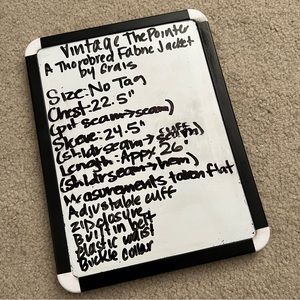 Vintage The Pointer
A Thorobred Fabric Jacket
by Crais
Size: No Tag
Chest: 22.5"
(pit seam→seam)
Sleeve: 24.5"
(shldr seam→cuff)
Length: Appx 26"
(shldr seam→hem)
Measurements taken flat
Adjustable cuff
Zip closure
Built in belt
Elastic waist
Buckle collar